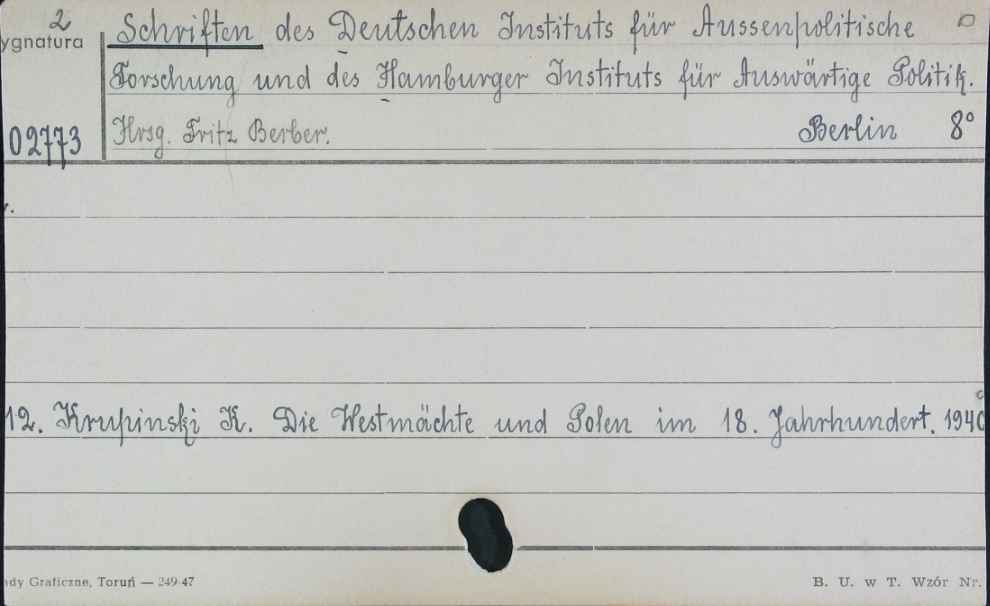 2 Schriften des Deutschen Instituts für Aussenpolitische
ygnatura
Forschung und des Hamburger Instituts für Auswärtige Politik.
02773 Hrsg. Fritz Berber. Berlin 8°
12. Krupinski K. Die Westmächte und Polen im 18. Jahrhundert. 1940
ady Graficzne, Toruń — 249-47 B. U. w T. Wzór Nr.